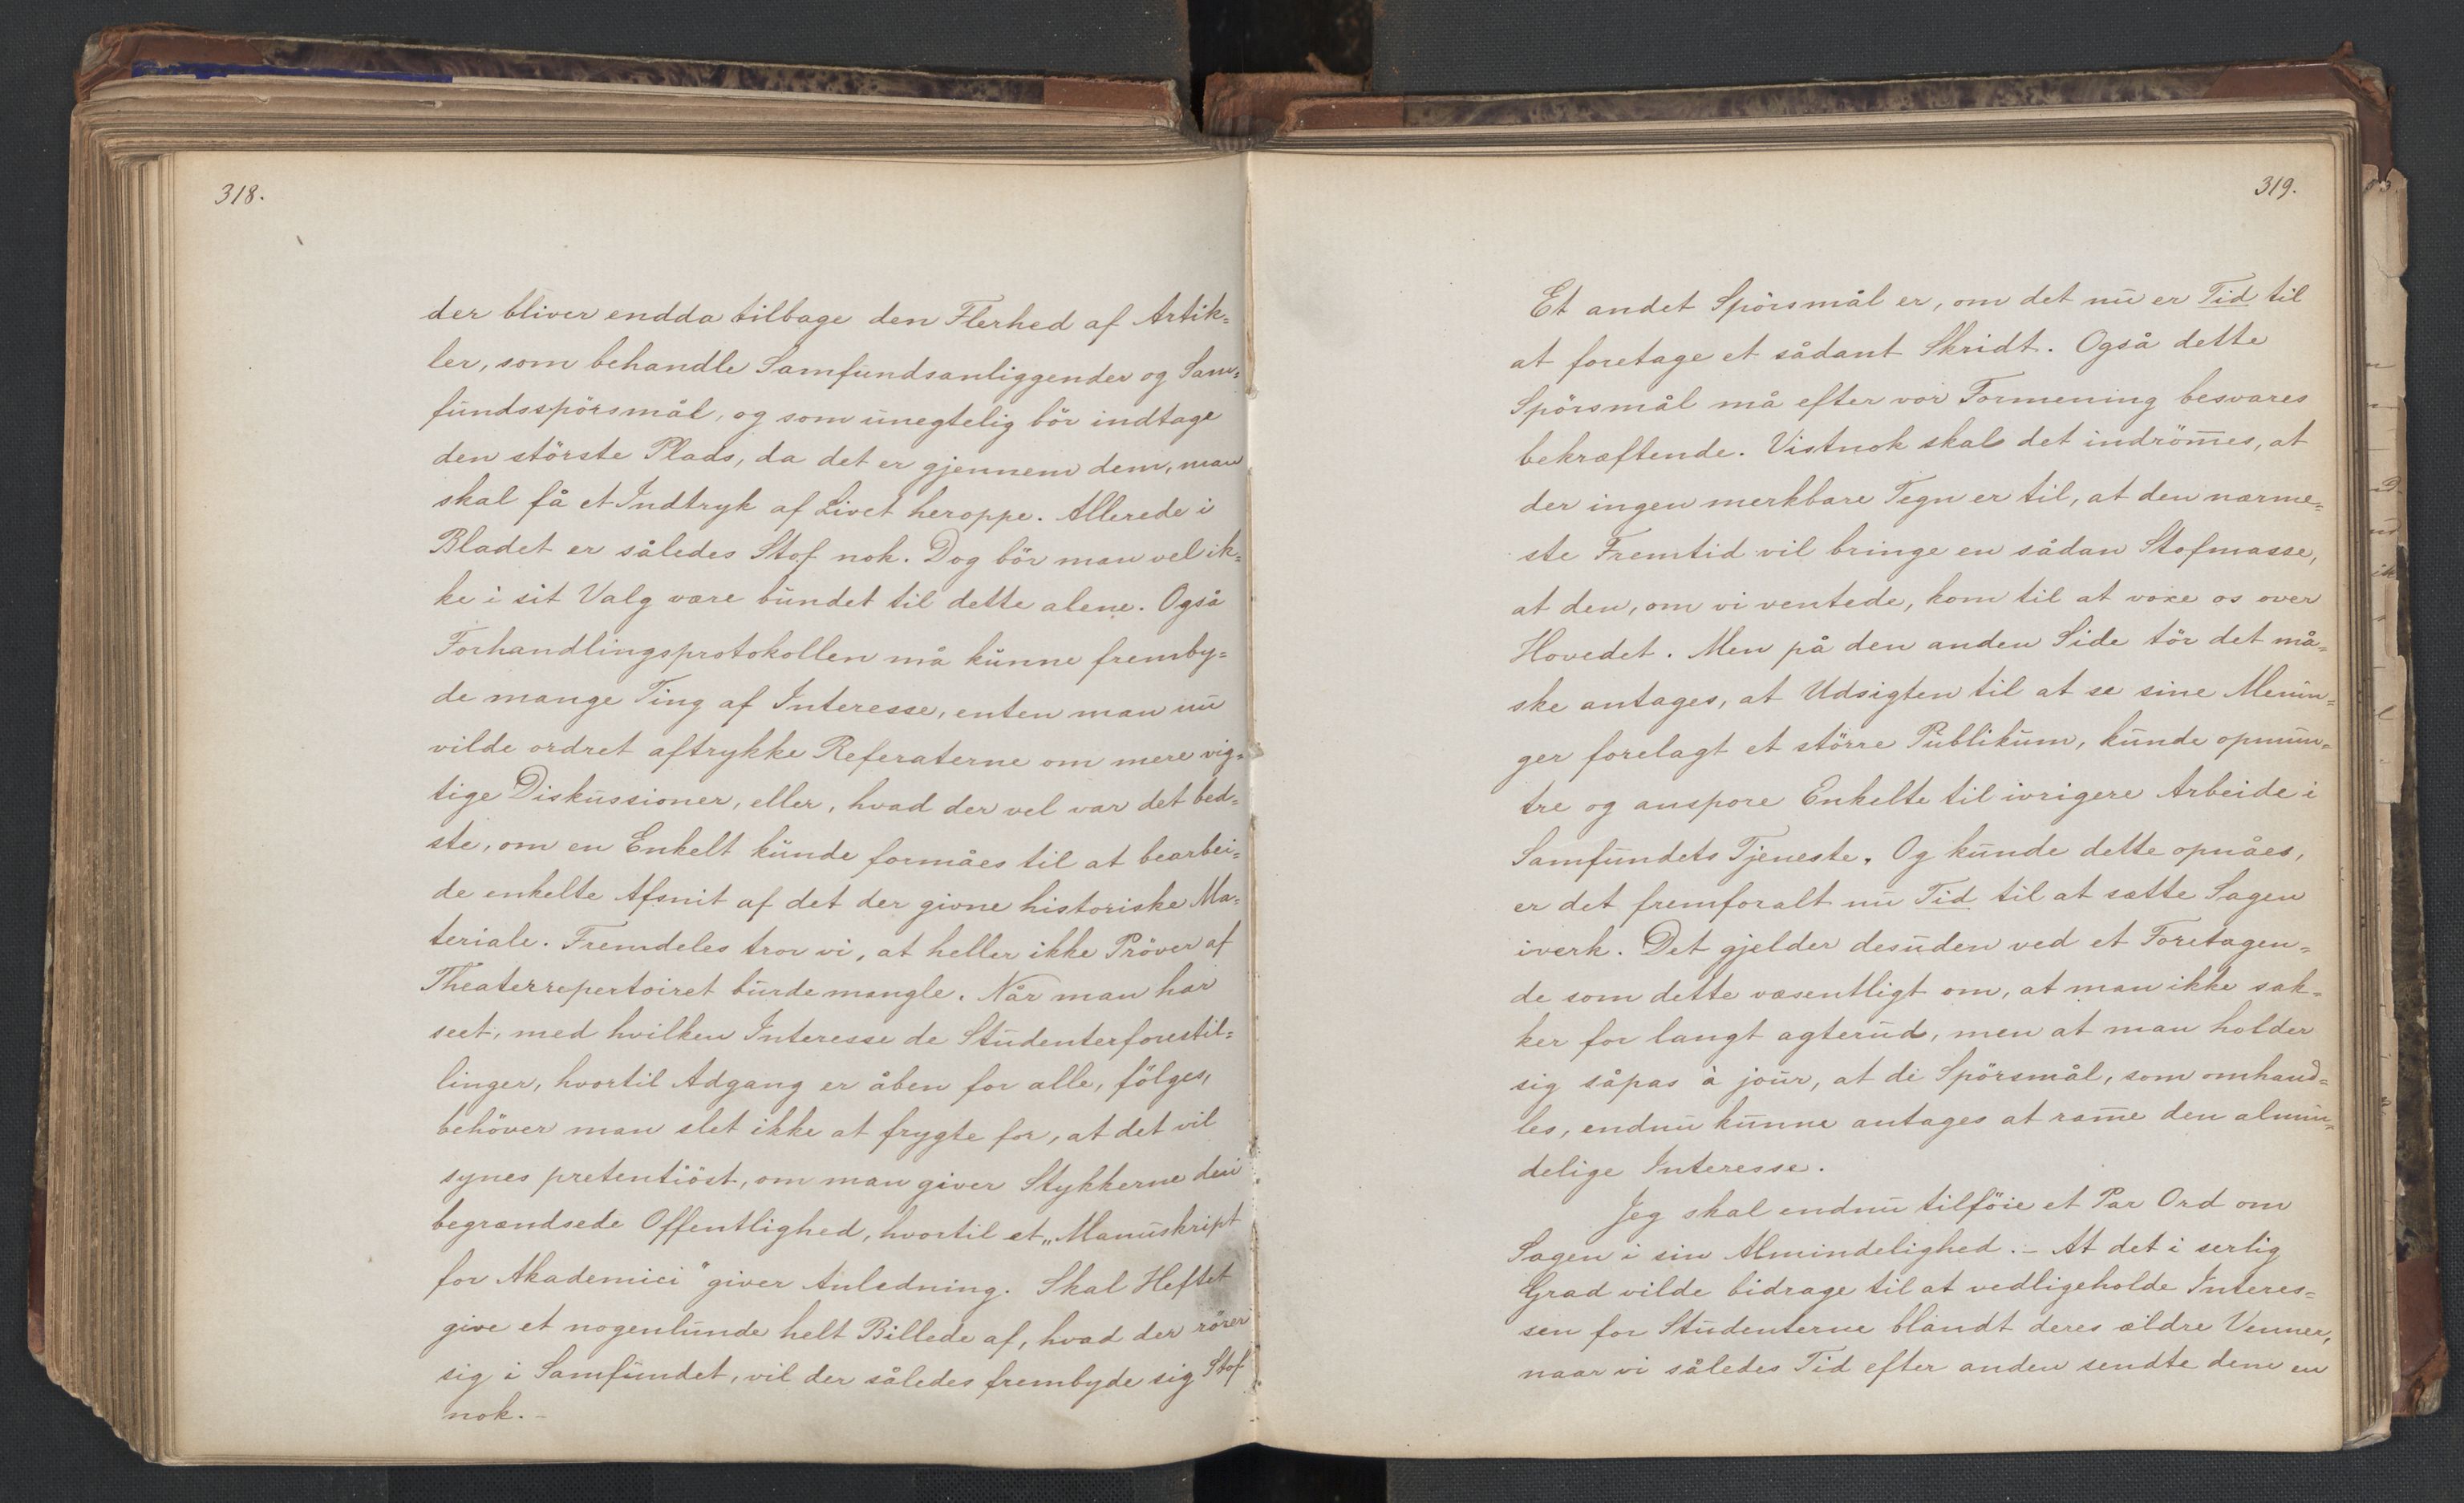 318.
der bliver endda tilbage den Flerhed af Artik=
ler, som behandle Samfundsanliggender og Sam=
fundsspörsmål, og som unegtelig bör indtage
den störste Plads, da det er gjennem dem, man
skal få et Indtryk af Livet heroppe. Allerede i
Bladet er således Stof nok. Dog bör man vel ik=
ke i sit Valg være bundet til dette alene. Også
Forhandlingsprotokollen må kunne fremby=
de mange Ting af Interesse, enten man nu
vilde ordret aftrykke Referaterne om mere vig=
tige Diskussioner, eller, hvad der vel var det bed=
ste, om en Enkelt kunde formåes til at bearbei=
de enkelte Afsnit af det der givne historiske Ma=
teriale. Fremdeles tror vi, at heller ikke Pröver af
Theaterrepertoiret burde mangle. Når man har
seet, med hvilken Interesse de Studenterforestil=
linger, hvortil Adgang er åben for alle, fölges,
behöver man slet ikke at frygte for, at det vil
synes pretentiöst, om man giver Stykkerne den
begrændsede Offentlighed, hvortil et „Manuskript
for Akademici" giver Anledning. Skal Heftet
give et nogenlunde helt Billede af, hvad der rörer
sig i Samfundet, vil der således frembyde sig Stof
nok. –
319.
Et andet Spörsmål er, om det nu er Tid til
at foretage et sådant Skridt. Også dette
Spörsmål må efter vor Formening besvares
bekræftende. Vistnok skal det indröm̅es, at
der ingen merkbare Tegn er til, at den nærme=
ste Fremtid vil bringe en sådan Stofmasse,
at den, om vi ventede, kom til at voxe os over
Hovedet. Men på den anden Side tör det må=
ske antages, at Udsigten til at se sine Menin=
ger forelagt et större Publikum, kunde opmun=
tre og anspore Enkelte til ivrigere Arbeide i
Samfundets Tjeneste. Og kunde dette opnåes,
er det fremforalt nu Tid til at sætte Sagen
iverk. Det gjelder desuden ved et Foretagen=
de som dette væsentligt om, at man ikke sak=
ker for langt agterud, men at man holder
sig såpas à jour, at de Spörsmål, som omhand=
les, endnu kunne antages at ram̅e den almin=
delige Interesse.
Jeg skal endnu tilföie et Par Ord om
Sagen i sin Almindelighed. – At det i serlig
Grad vilde bidrage til at vedligeholde Interes=
sen for Studenterne blandt deres ældre Venner,
naar vi således Tid efter anden sendte dem en